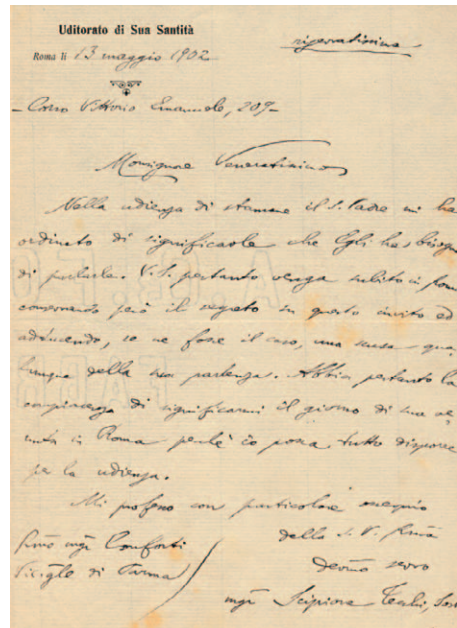 Uditorato di Sua Santità
riservatissima
Roma li 13 maggio 1902
- Corso Vittorio Emanuele, 209 -
Monsignore Veneratissimo
Nella udienza di stamane il S. Padre mi ha
ordinato di significarle che Egli ha bisogno
di parlarle. V. S. pertanto venga subito in Roma
conservando però il segreto su questo invito ed
adducendo, se ne fosse il caso, una scusa qua-
lunque della sua partenza. Abbia pertanto la
compiacenza di significarmi il giorno di sua ve-
nuta in Roma perchè io possa tutto disporre
per la udienza.
Mi professo con particolare ossequio
della S. V. Rma
devmo servo
mgr Scipione Tecchi,
mgr Conforti
di Parma